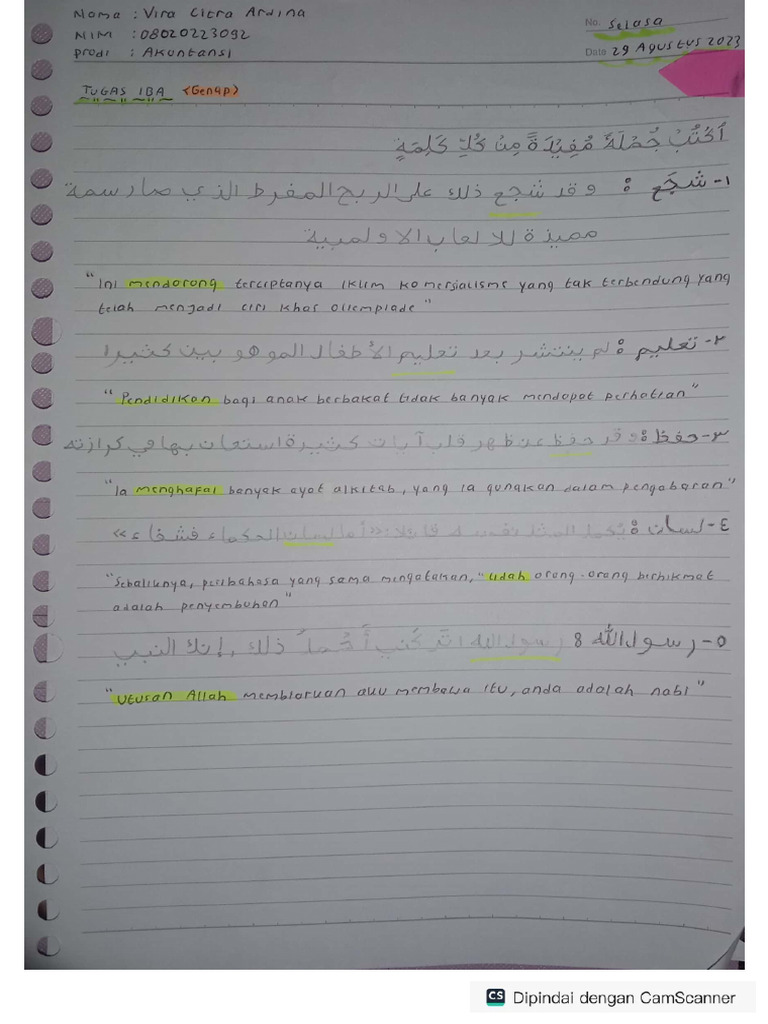 Nama : Vira Citra Ardina
NIM : 08020223092
Prodi : Akuntansi
No. Selasa
Date 29 Agustus 2023
TUGAS IBA <Genap>
أَكْتُبْ جُمْلَةً مُفِيْدَةً مِنْ كُلِّ كَلِمَةٍ
١- شَجَّع : وقد شجع ذلك على الربح المفرط الذي صار سمة
مميزة للالعاب الاولمبية
"Ini mendorong terciptanya iklim komersialisme yang tak terbendung yang
telah menjadi ciri khas olimpiade"
٢- تعليم : لم ينتشر بعد تعليم الأطفال الموهوبين كثيرا
"Pendidikan bagi anak berbakat tidak banyak mendapat perhatian"
٣- حفظ : وقد حفظ عن ظهر قلب آيات كثيرة استعان بها في كرازته
"Ia menghafal banyak ayat alkitab, yang ia gunakan dalam pengabaran"
٤- لسان : يُكمل المثل نفسه قائلا: «أما لسان الحكماء فشفاء»
"Sebaliknya, peribahasa yang sama mengatakan, "lidah orang-orang berhikmat
adalah penyembuhan"
٥- رسول الله : رسول الله اتركني أحمل ذلك، إنك النبي
"Utusan Allah membiarkan aku membawa itu, anda adalah nabi"
CS Dipindai dengan CamScanner